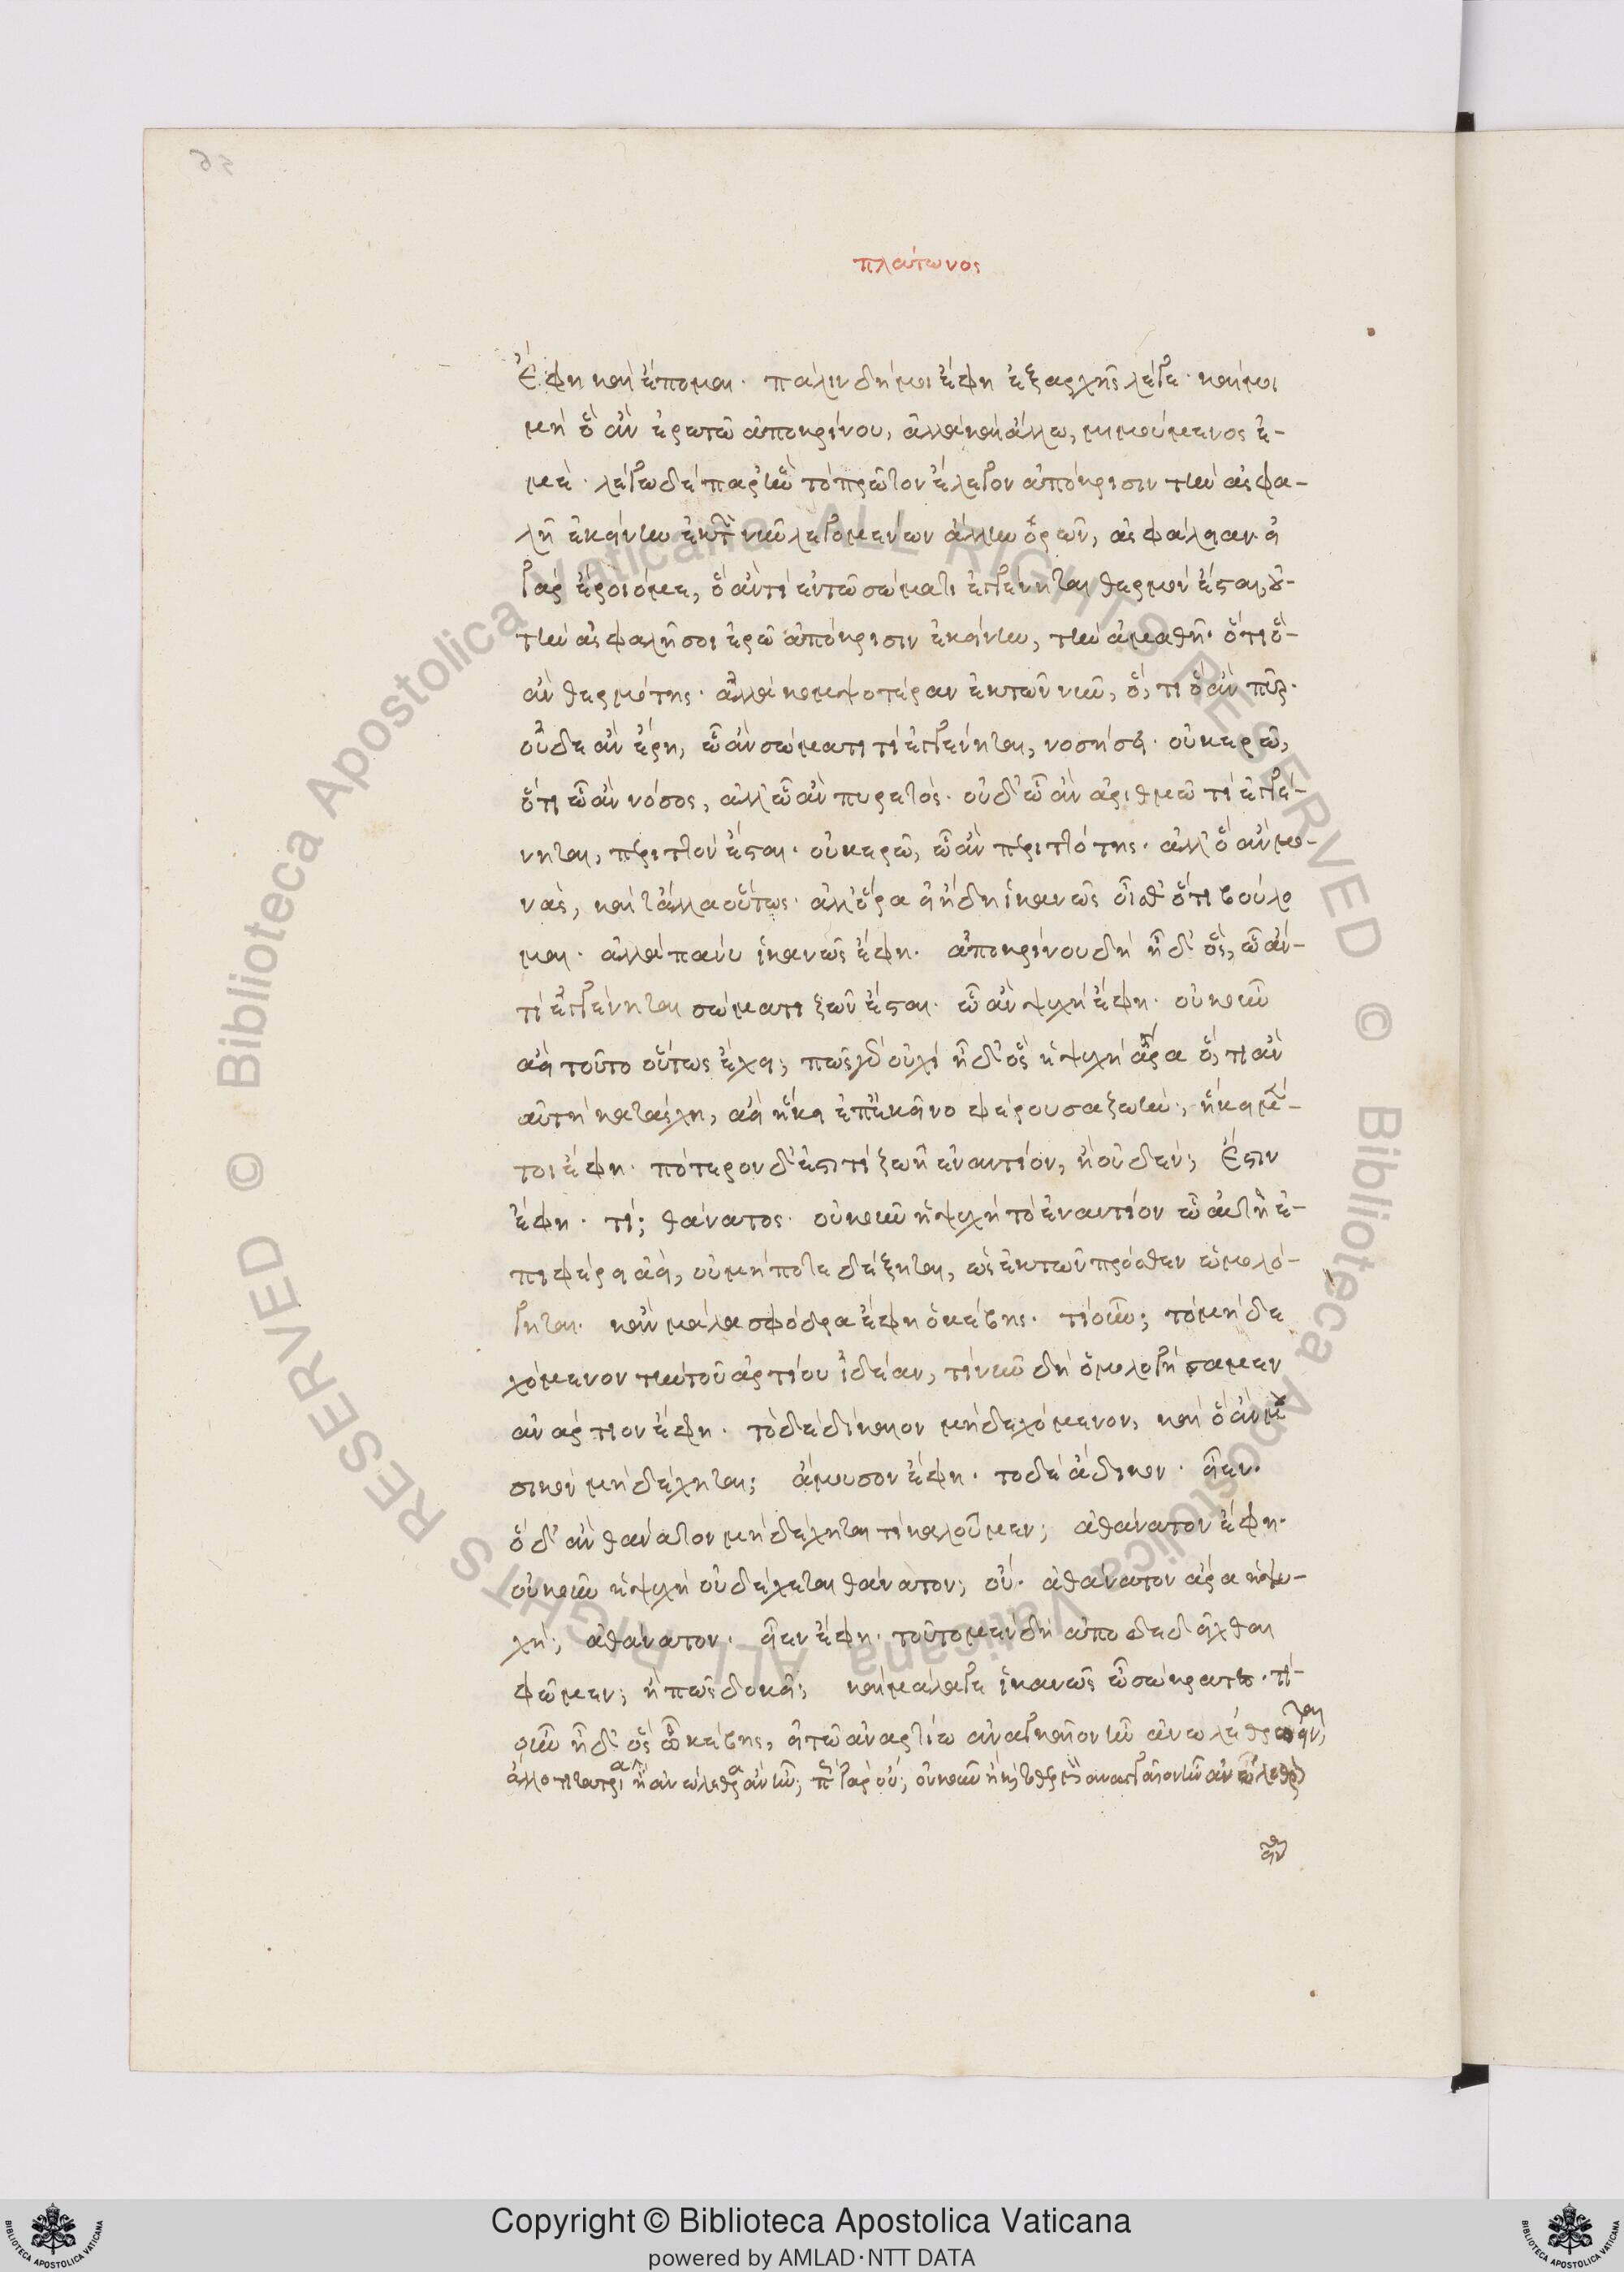 πλάτωνος
ἔφη καὶ ἕπομαι. πάλιν δή μοι ἔφη ἐξ ἀρχῆς λέγε. καί μοι
μὴ ὃ ἂν ἐρωτῶ ἀποκρίνου, ἀλλὰ καὶ ἄλλω, μιμούμενος ἐ-
μέ. λέγω δὲ παρ' ἣν τὸ πρῶτον ἔλεγον ἀπόκρισιν τὴν ἀσφα-
λῆ ἐκείνην ἐκ τῶν νῦν λεγομένων ἄλλην ὁρῶν, ἀσφάλειαν. εἰ
γὰρ ἔροιό με, ὃ ἂν τί ἐν τῶ σώματι ἐγγένηται θερμὸν ἔσται, οὐ
τὴν ἀσφαλῆ σοι ἐρῶ ἀπόκρισιν ἐκείνην, τὴν ἀμαθῆ. ὅτι ὃ
ἂν θερμότης. ἀλλὰ κομψοτέραν ἐκ τῶν νῦν, ὅ, τι ὃ ἂν πῦρ.
οὐδὲ ἂν ἔρη, ὧ ἂν σώματι τί ἐγγένηται, νοσήσει. οὐκ ἐρῶ,
ὅτι ὧ ἂν νόσος, ἀλλ' ὧ ἂν πυρετός. οὐδ' ὧ ἂν ἀριθμῶ τί ἐγγέ-
νηται, περιττὸν ἔσται. οὐκ ἐρῶ, ὧ ἂν περιττότης. ἀλλ' ὃ ἂν μο-
νὰς, καὶ τἄλλα οὕτως. ἀλλ' ὅρα εἰ ἤδη ἱκανῶς οἶσθ' ὅτι βούλο
μαι. ἀλλὰ πάνυ ἱκανῶς ἔφη. ἀποκρίνου δὴ ἦ δ' ὃς, ὧ ἂν
τί ἐγγένηται σώματι ζῶν ἔσται. ὧ ἂν ψυχὴ ἔφη. οὐκοῦν
ἀεὶ τοῦτο οὕτως ἔχει; πῶς γὰρ οὐχί ἦ δ' ὃς ἡ ψυχὴ ἄρα ὅ, τι ἂν
αὐτὴ κατάσχη, ἀεὶ ἥκει ἐπ' ἐκεῖνο φέρουσα ζωήν; ἥκει μέν-
τοι ἔφη. πότερον δ' ἔστι τί ζωῆ ἐναντίον, ἢ οὐδέν; ἔστιν
ἔφη. τί; θάνατος. οὐκοῦν ἡ ψυχὴ τὸ ἐναντίον ὧ αὐτὴ ἐ-
πιφέρει ἀεὶ, οὐ μήποτε δέξηται, ὡς ἐκ τῶν πρόσθεν ὡμολό-
γηται. καὶ μάλα σφόδρα ἔφη ὁ κέβης. τί οὖν; τὸ μὴ δε
χόμενον τὴν τοῦ ἀρτίου ἰδέαν, τί νῦν δὴ ὁμολογήσαμεν
ἀνάρτιον ἔφη. τὸ δὲ δίκαιον μὴ δεχόμενον, καὶ ὃ ἂν μου
σικὸν μὴ δέχηται; ἄμουσον ἔφη. τὸ δὲ ἄδικον. εἶεν.
ὃ δ' ἂν θάνατον μὴ δέχηται τί καλοῦμεν; ἀθάνατον ἔφη.
οὐκοῦν ἡ ψυχὴ οὐ δέχεται θάνατον; οὔ. ἀθάνατον ἄρα ἡ ψυ-
χή; ἀθάνατον. εἶεν ἔφη. τοῦτο μὲν δὴ ἀποδεδεῖχθαι
φῶμεν; ἢ πῶς δοκεῖ; καὶ μάλα γε ἱκανῶς ὦ σώκρατες. τί
οὖν ἦ δ' ὃς ὦ κέβης, εἰ τῶ ἀναρτίω ἀναγκαῖον ἦν ἀνωλέθρω εἶναι,